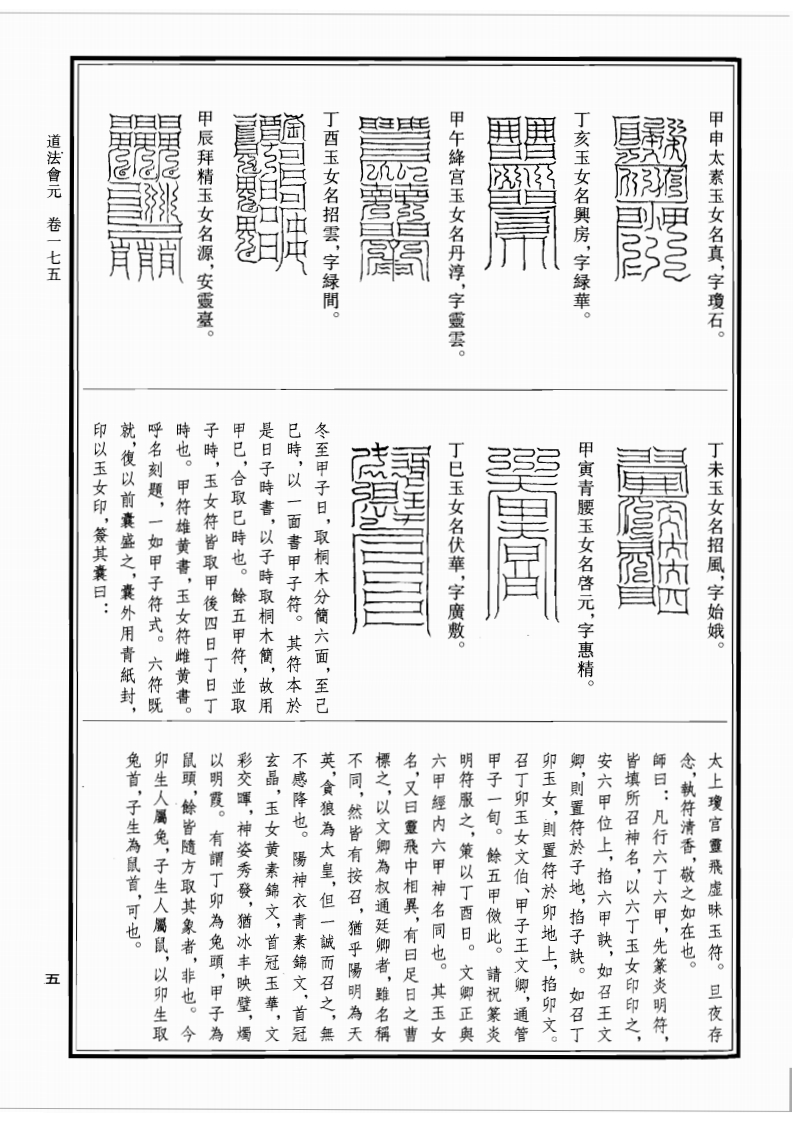 道法會元　卷一七五
甲申太素玉女名真，字瓊石。
丁亥玉女名興房，字緑華。
甲午絳宫玉女名丹淳，字靈雲。
丁酉玉女名招雲，字緑間。
甲辰拜精玉女名源，安靈臺。
丁未玉女名招風，字始娥。
甲寅青腰玉女名啓元，字惠精。
丁巳玉女名伏華，字廣敷。
冬至甲子日，取桐木分簡六面，至己
巳時，以一面書甲子符。其符本於
是日子時書，以子時取桐木簡，故用
甲巳，合取巳時也。餘五甲符，並取
子時，玉女符皆取甲後四日丁日丁
時也。甲符雄黄書，玉女符雌黄書。
呼名刻題，一如甲子符式。六符既
就，復以前囊盛之，囊外用青紙封，
印以玉女印，簽其囊曰：
太上瓊宫靈飛虚昧玉符。旦夜存
念，執符清香，敬之如在也。
師曰：凡行六丁六甲，先篆炎明符，
皆填所召神名，以六丁玉女印印之，
安六甲位上，掐六甲訣，如召王文
卿，則置符於子地，掐子訣。如召丁
卯玉女，則置符於卯地上，掐卯文。
召丁卯玉女文伯、甲子王文卿，通管
甲子一旬。餘五甲倣此。請祝篆炎
明符服之，策以丁酉日。文卿正與
六甲經内六甲神名同也。其玉女
名，又曰靈飛中相異，有曰足日之曹
標之，以文卿為叔通廷卿者，雖名稱
不同，然皆有按召，猶乎陽明為天
英，貪狼為太皇，但一誠而召之，無
不感降也。陽神衣青素錦文，首冠
玄晶，玉女黄素錦文，首冠玉華，文
彩交暉，神姿秀發，猶冰丰映璧，燭
以明霞。有謂丁卯為兔頭，甲子為
鼠頭，餘皆隨方取其象者，非也。今
卯生人屬兔，子生人屬鼠，以卯生取
兔首，子生為鼠首，可也。
五